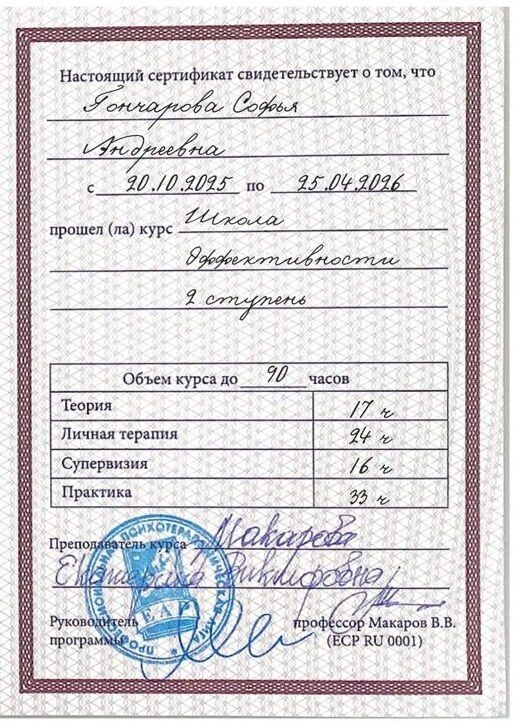 Настоящий сертификат свидетельствует о том, что
Гончарова Софья
Андреевна
с 20.10.2025 по 25.04.2026
прошел (ла) курс Школа
Эффективности
2 ступень
Объем курса до 90 часов
Теория 17 ч
Личная терапия 24 ч
Супервизия 16 ч
Практика 33 ч
Преподаватель курса Макарова
Екатерина Викторовна
Руководитель профессор Макаров В.В.
программы (ECP RU 0001)
ПРОФЕССИОНАЛЬНАЯ ПСИХОТЕРАПЕВТИЧЕСКАЯ ЛИГА
EAP